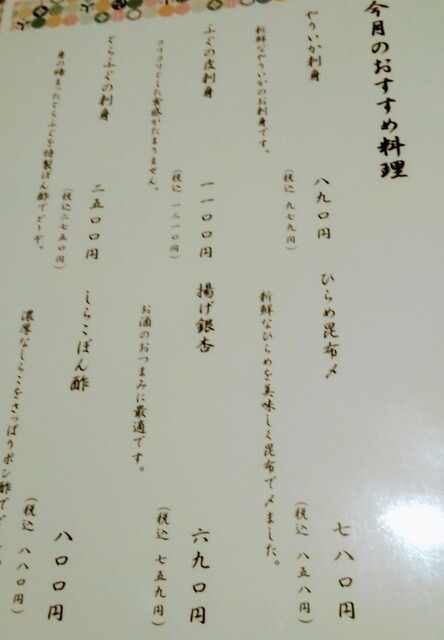 今月のおすすめ料理
やりいか刺身
八九〇円
新鮮なやりいかのお刺身です。
(税込 九七九円)
ふぐの皮刺身
一一〇〇円
コリコリとした食感がたまりません。
(税込 一二一〇円)
とらふぐの刺身
二五〇〇円
身の締まったとらふぐを特製ぽん酢でどーぞ。
(税込二七五〇円)
ひらめ昆布〆
七八〇円
新鮮なひらめを美味しく昆布で〆ました。
(税込 八五八円)
揚げ銀杏
六九〇円
お酒のおつまみに最適です。
(税込 七五九円)
しらこぽん酢
八〇〇円
濃厚なしらこをさっぱりポン酢で
(税込 八八〇円)